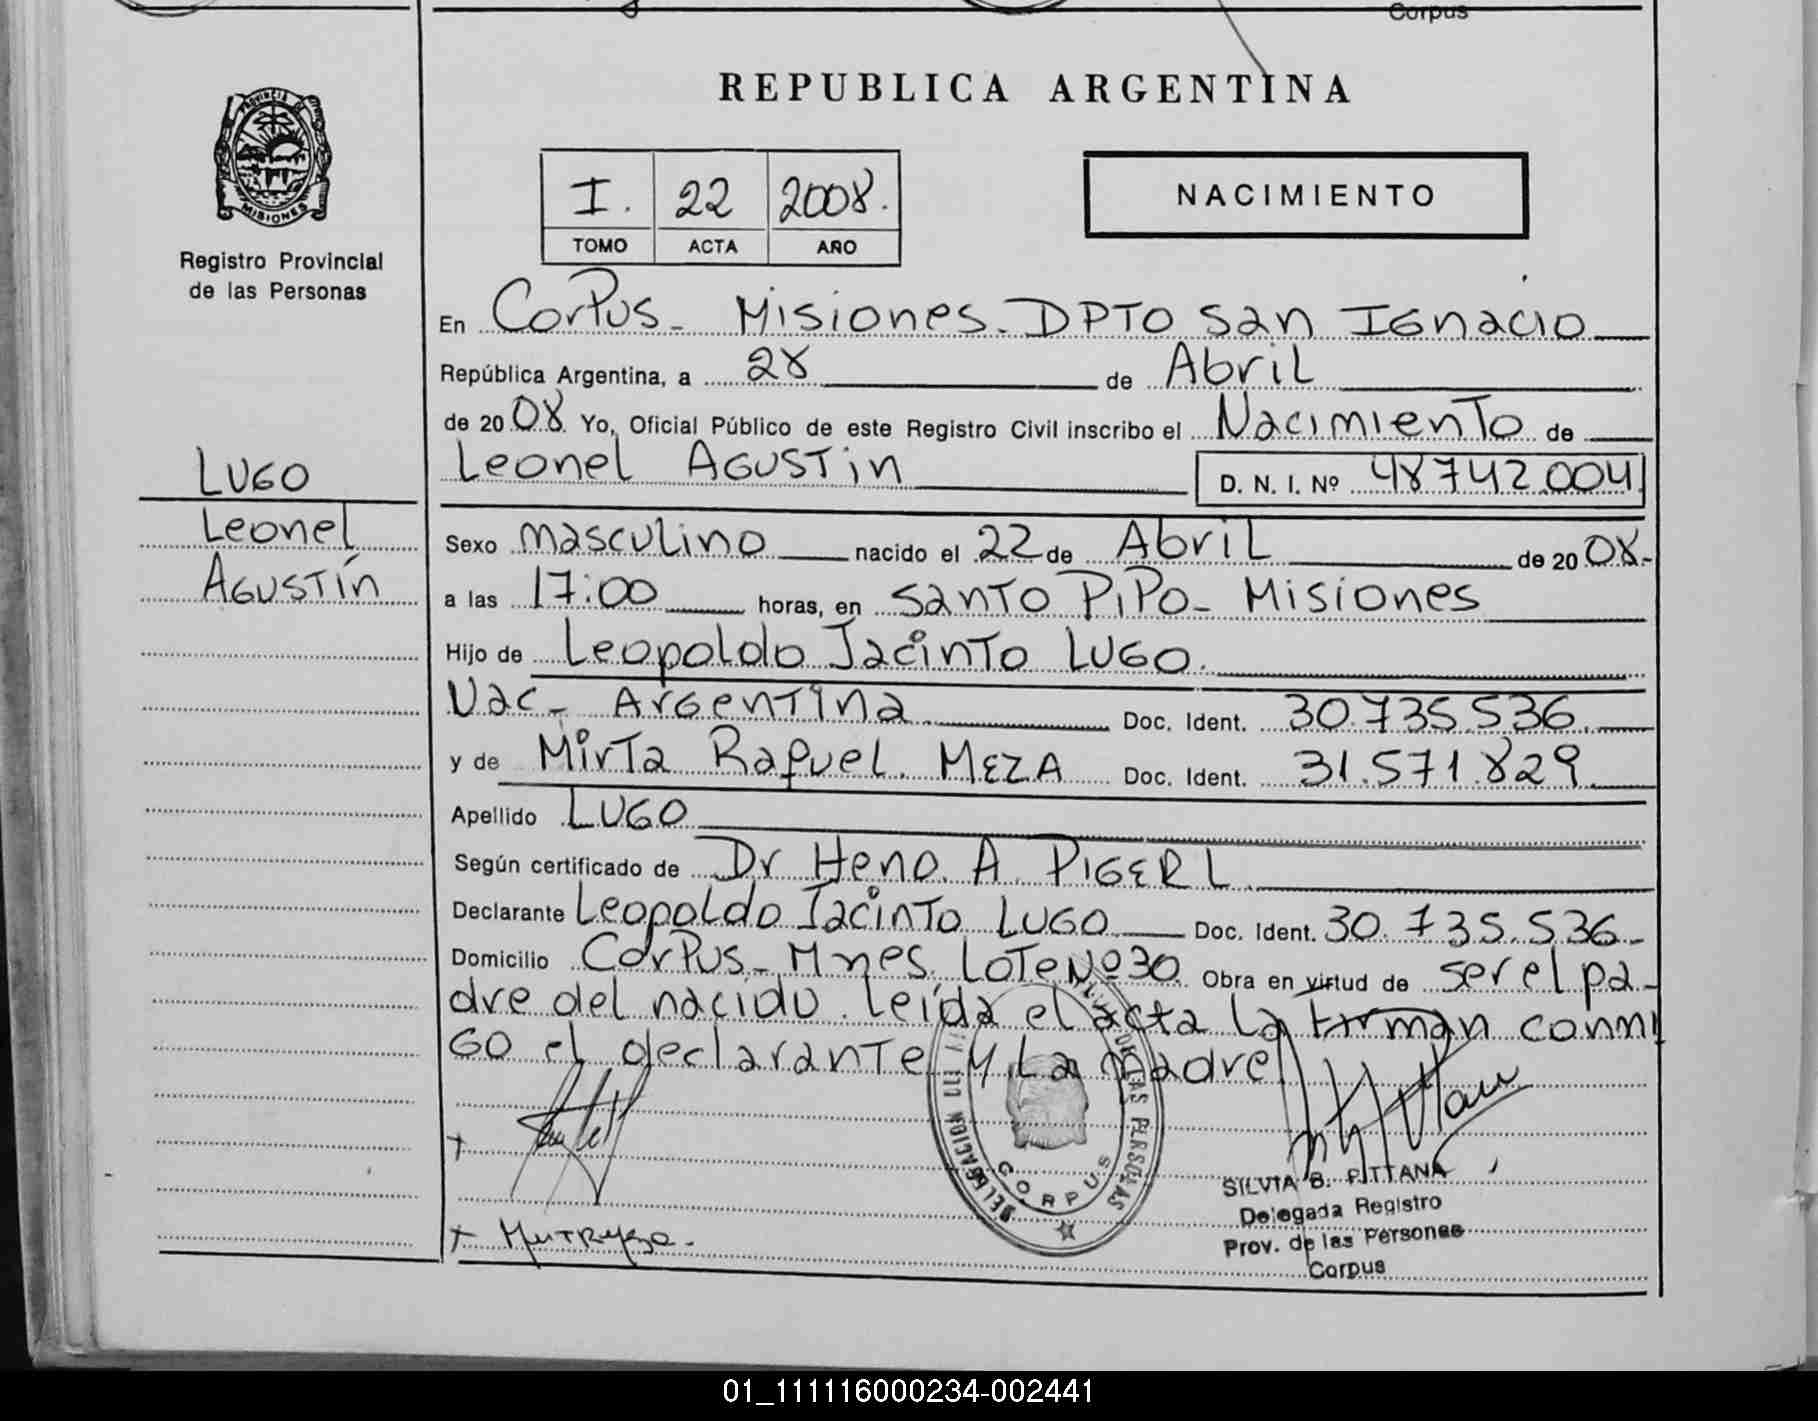 Corpus
REPUBLICA ARGENTINA
PROVINCIA DE
MISIONES
Registro Provincial
de las Personas
I. 22 2008.
TOMO ACTA AÑO
NACIMIENTO
En Corpus - Misiones - DPTO San Ignacio
República Argentina, a 28 de Abril
de 2008 Yo, Oficial Público de este Registro Civil inscribo el Nacimiento de
Leonel Agustin D. N. I. Nº 48742004
LUGO
Leonel
Agustín
Sexo masculino nacido el 22 de Abril de 2008.-
a las 17:00 horas, en Santo Pipo - Misiones
Hijo de Leopoldo Jacinto Lugo.
Nac - Argentina Doc. Ident. 30.735.536.
y de Mirta Raquel. MEZA Doc. Ident. 31.571.829.
Apellido LUGO
Según certificado de Dr Heno. A. PIGERL
Declarante Leopoldo Jacinto LUGO Doc. Ident. 30.735.536-
Domicilio Corpus - Mnes. Lote Nº 30. Obra en virtud de ser el pa-
dre del nacido. leída el acta la firman conmi
go el declarante y la madre
DELEGACION DEL REGISTRO PROVINCIAL DE LAS PERSONAS
CORPUS
SILVIA B. PITTANA
Delegada Registro
Prov. de las Personas
Corpus
01_111116000234-002441